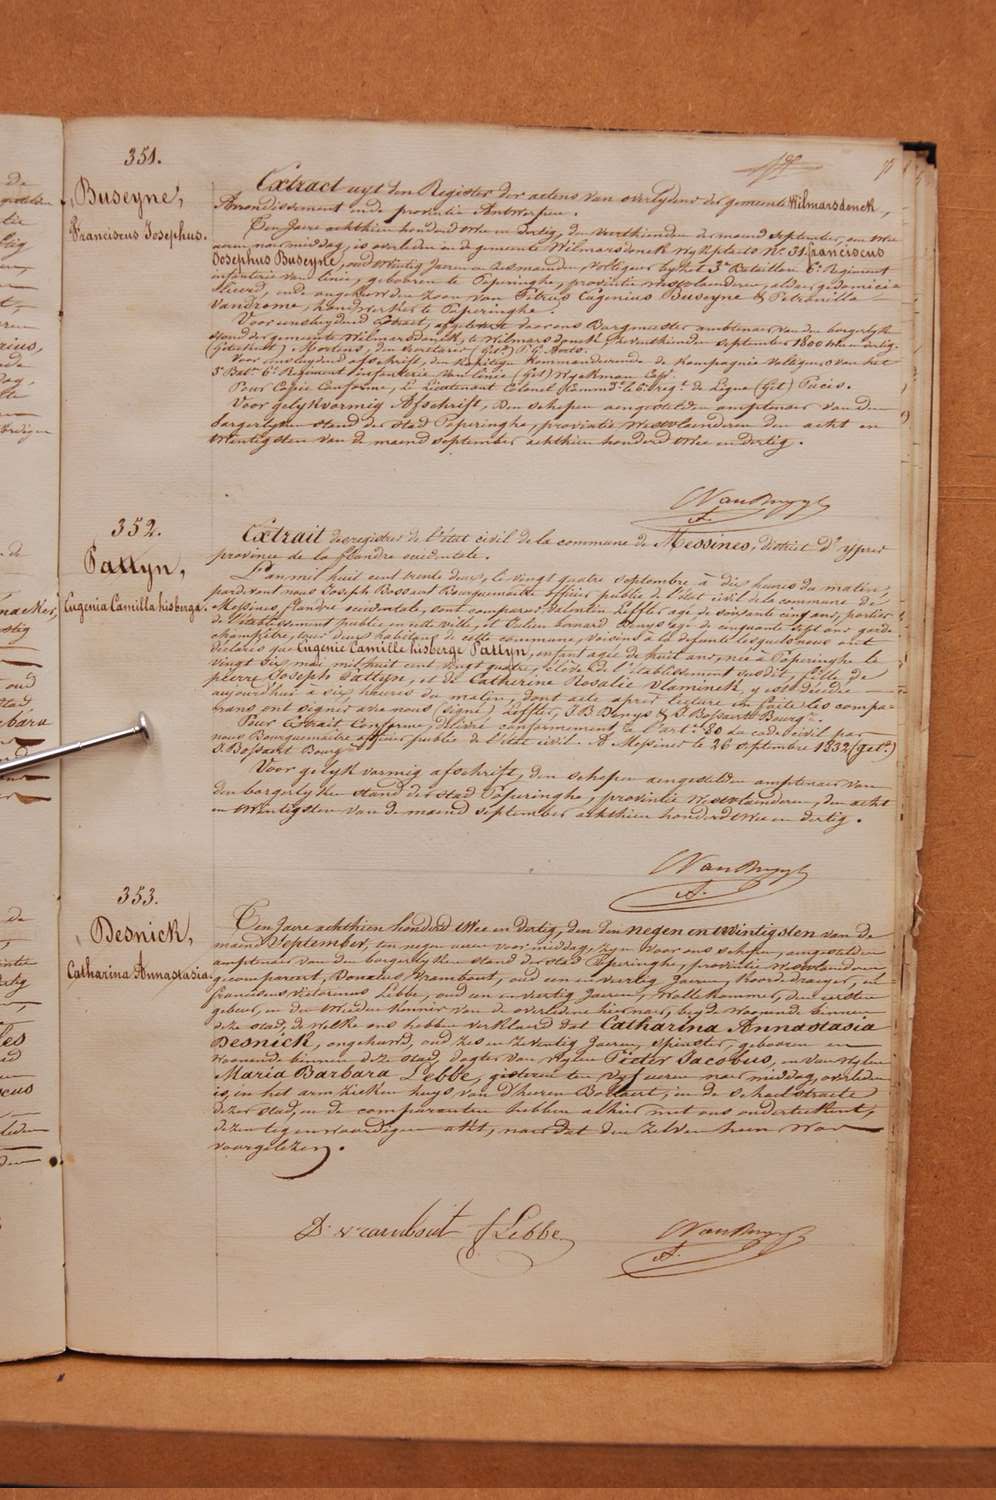 351.
Buseyne,
Franciscus Josephus.
Extract uyt den Register der actens van overlydens der gemeente Wilmarsdonck,
Arrondissement ende provintie Antwerpen.
Ten Jaere achthien honderd twee en dertig, den veerthienden der maend september, om twee
uren naer middag, is overleden in de gemeente Wilmarsdonck Wykplaets No. 31. franciscus
Josephus Buseyne, oud twintig Jaeren en zes maenden, voltigeur by het 3e Bataillon 6e Regiment
infanterie van linie, gebooren te Poperinghe, provintie westvlaenderen, aldaer gedomici=
lieerd, ende ongehuwden zoon van Petrus Eugenius Buseyne & Petronilla
Vandrome, handwerker te Poperinghe.
Voor eensluydend Extract, afgelevert door ons Burgmeester ambtenaer van den borgerlyken
stand der gemeente Wilmarsdonck, te Wilmarsdonck de veerthienden september 1800 twee en dertig.
(Geteekent) Mertens, den Secretaris (Get.) P. G. Aerts.
Voor eensluydend afschrift, den kapiteyn kommanderende de kompagnie voltigeurs van het
3e Batn 6e Regiment infanterie van linie (Get) Wyckman Capt.
Pour Copie Conforme, Le Lieutenant Colonel Commdt le 6e regt de Ligne (Get) Pucis.
Voor gelykvormig Afschrift, den schepen aengestelden amptenaer van den
borgerlyken stand der stad Poperinghe, provintie Westvlaenderen den acht en
twintigsten van de maend september achthien honderd twee en dertig.
352.
Pattyn,
Eugenia Camilla hisberga.
Extrait des registres de l'état civil de la commune de Messines, district d'ypres
province de la flandre occidentale.
L'an mil huit cent trente deux, le vingt quatre septembre à dix heures du matin,
pardevant nous Joseph Bossaert Bourguemaitre officier public de l'état civil de la commune de
Messines, flandre occidentale, sont comparus Valentin Löffler agé de soixante cinq ans, portier
de l'établissement public en cette ville, et Julien bernard Denys agé de cinquante sept ans garde
champêtre, tous deux habitans de cette commune, voisins à la defunte lesquels nous ont
declarés que Eugenie Camille hisberge Pattyn, enfant agée de huit ans, née à Poperinghe le
vingt six mai mil huit cent vingt quatre, élève de l'établissement susdit, fille de
pierre Joseph Pattyn, et de Catherine Rosalie Vlaminck, y est décédée
aujourd'hui à six heures du matin, dont acte après lecture en faite les compa=
rans ont signés avec nous (signé) Löffler, J. B. Denys & J. Bossaert Bourgre.
Pour Extrait Conforme, Délivré conformement à l'art. 80 du code civil par
nous Bourguemaitre officier public de l'état civil. A Messines le 26 septembre 1832 (get.)
J. Bossaert Bourgre.
Voor gelyk vormig afschrift, den schepen aengestelden amptenaer van
den borgerlyken stand der stad Poperinghe, provintie Westvlaenderen, den acht
en twintigsten van de maend september achthien honderd twee en dertig.
353.
Desnick,
Catharina Annastasia.
Ten Jaere achthien honderd twee en dertig, den den negen en twintigsten van de
maend September, ten negen uren voor middag, zyn voor ons schepen, aengestelden
amptenaer van den borgerlyken stand der stad Poperinghe, provintie Westvlaenderen
gecompareert, Donatus Vrambout, oud een en veertig Jaeren, koordedraeyer, en
franciscus victorinus Lebbe, oud een en veertig Jaeren, Wollekammer, den eersten
gebuer, en den tweeden kennis van de overledene hiernaer, beyde woonende binnen
deze stad, de welke ons hebben verklaerd dat Catharina Annastasia
Desnick, ongehuwd, oud zes en zeventig Jaeren, Spinster, gebooren en
woonende binnen deze stad, dogter van wylen Pieter Jacobus, en van wylen
Maria Barbara Lebbe, gisteren ten vyf uren naer middag, overleden
is, in het arm zieken huys van d'heeren Bollaert, in de schoolstraete
dezer stad, en de comparanten hebben alhier met ons onderteekent,
dezen tegenwoordigen akt, naer dat den zelven hun was
voorgelezen.
D. vrambout f Lebbe